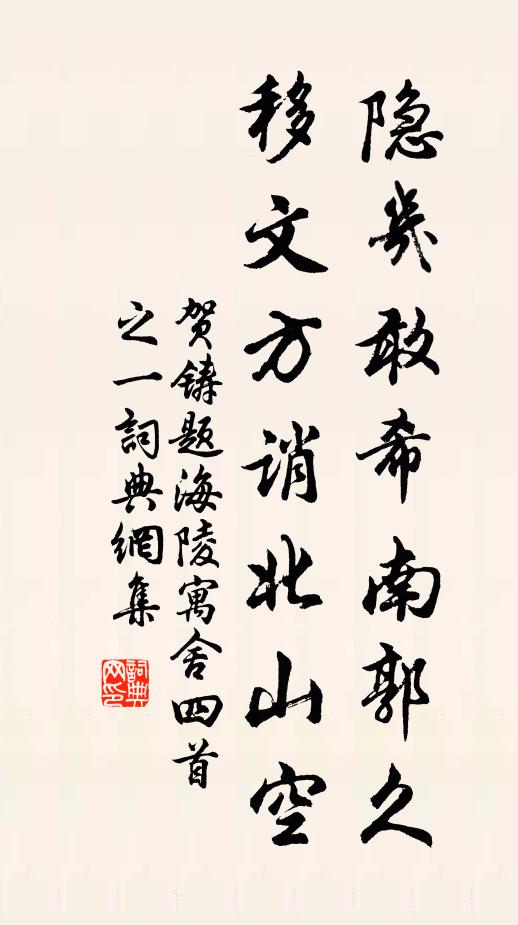 隐几敢希南郭久
移文方诮北山空
贺铸题海陵寓舍四首
之一詞典網集
詞典网印